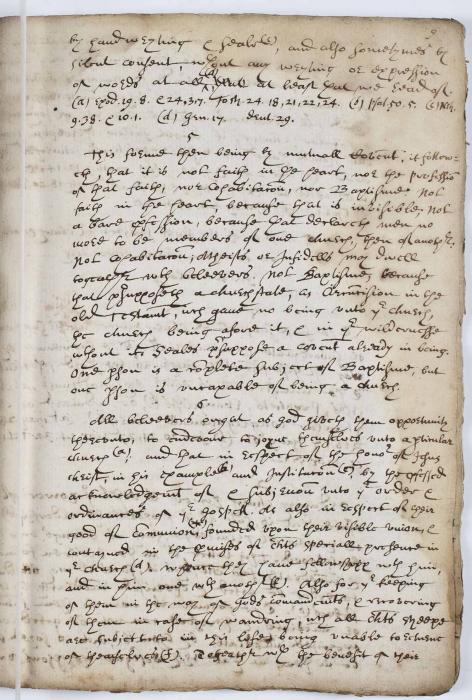 9
by handwryting & seales(c), and also sometymes by
silent consent, without any wryting or expression
of words at all(d), at least that we read of.
(a) Exod. 19. 8. & 24, 3, 7. Josh. 24. 18, 21, 22, 24. (b) Psal. 50. 5. (c) Neh.
9. 38. & 10. 1. (d) Gen. 17. Deut. 29.
5
This forme then being by mutuall Covent, it follow-
eth, that it is not faith in the heart, nor the profession
of that faith, nor Cohabitation, nor Baptisme. Not
faith in the heart, because that is invisible, Not
a bare profession, because that declareth men no
more to be members of one church, then of another,
Not Cohabitation; Atheists, or Infidells may dwell
together with beleevers. Not Baptisme, because
that presupposeth a church state, as Circumcision in the
old Testament, which gave no being unto ye church,
the church being afore it, & in ye wildernesse
without it. Seales presuppose a covent already in being.
One person is a complete subject of Baptisme, but
one person is uncapable of being a church.
6
All beleevers ought, as god giveth them opportunity
thereunto, to endevour to joyne themselves unto a particular
church(a), and that in respect of the honor of Jesus
Christ, in his Example(b) and Institution(c), by the professed
acknowledgment of & subjection unto ye order &
ordinances of ye gospel. As also in respect of their
good of communion, founded upon their visible union, &
contained in the promises of Christs speciall presence in
ye church(d). whence they have fellowship with him,
and in him, one with another(e). Also for ye keeping
of them in the way of gods commandmts, & recovering
of them in case of wandring, which all Christs sheepe
are subject unto in this life, being unable to returne
of themselves(f). Together with the benefit of their